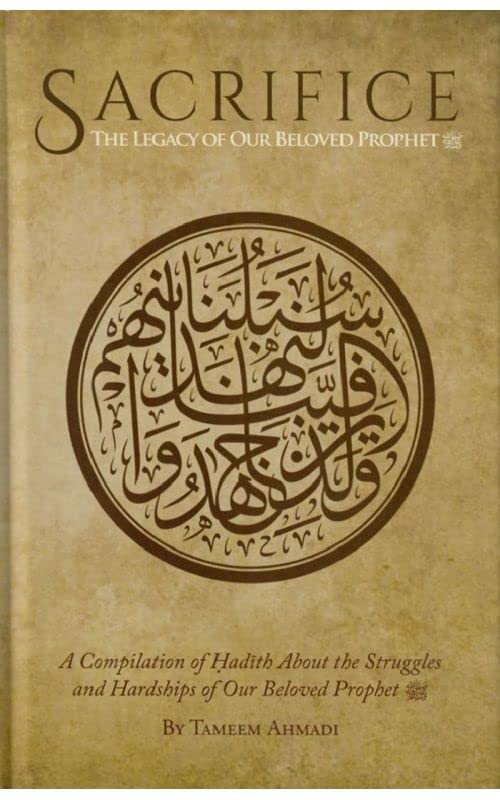 SACRIFICE
THE LEGACY OF OUR BELOVED PROPHET ﷺ
والذين جاهدوا فينا لنهدينهم سبلنا
A Compilation of Ḥadīth About the Struggles
and Hardships of Our Beloved Prophet ﷺ
BY TAMEEM AHMADI